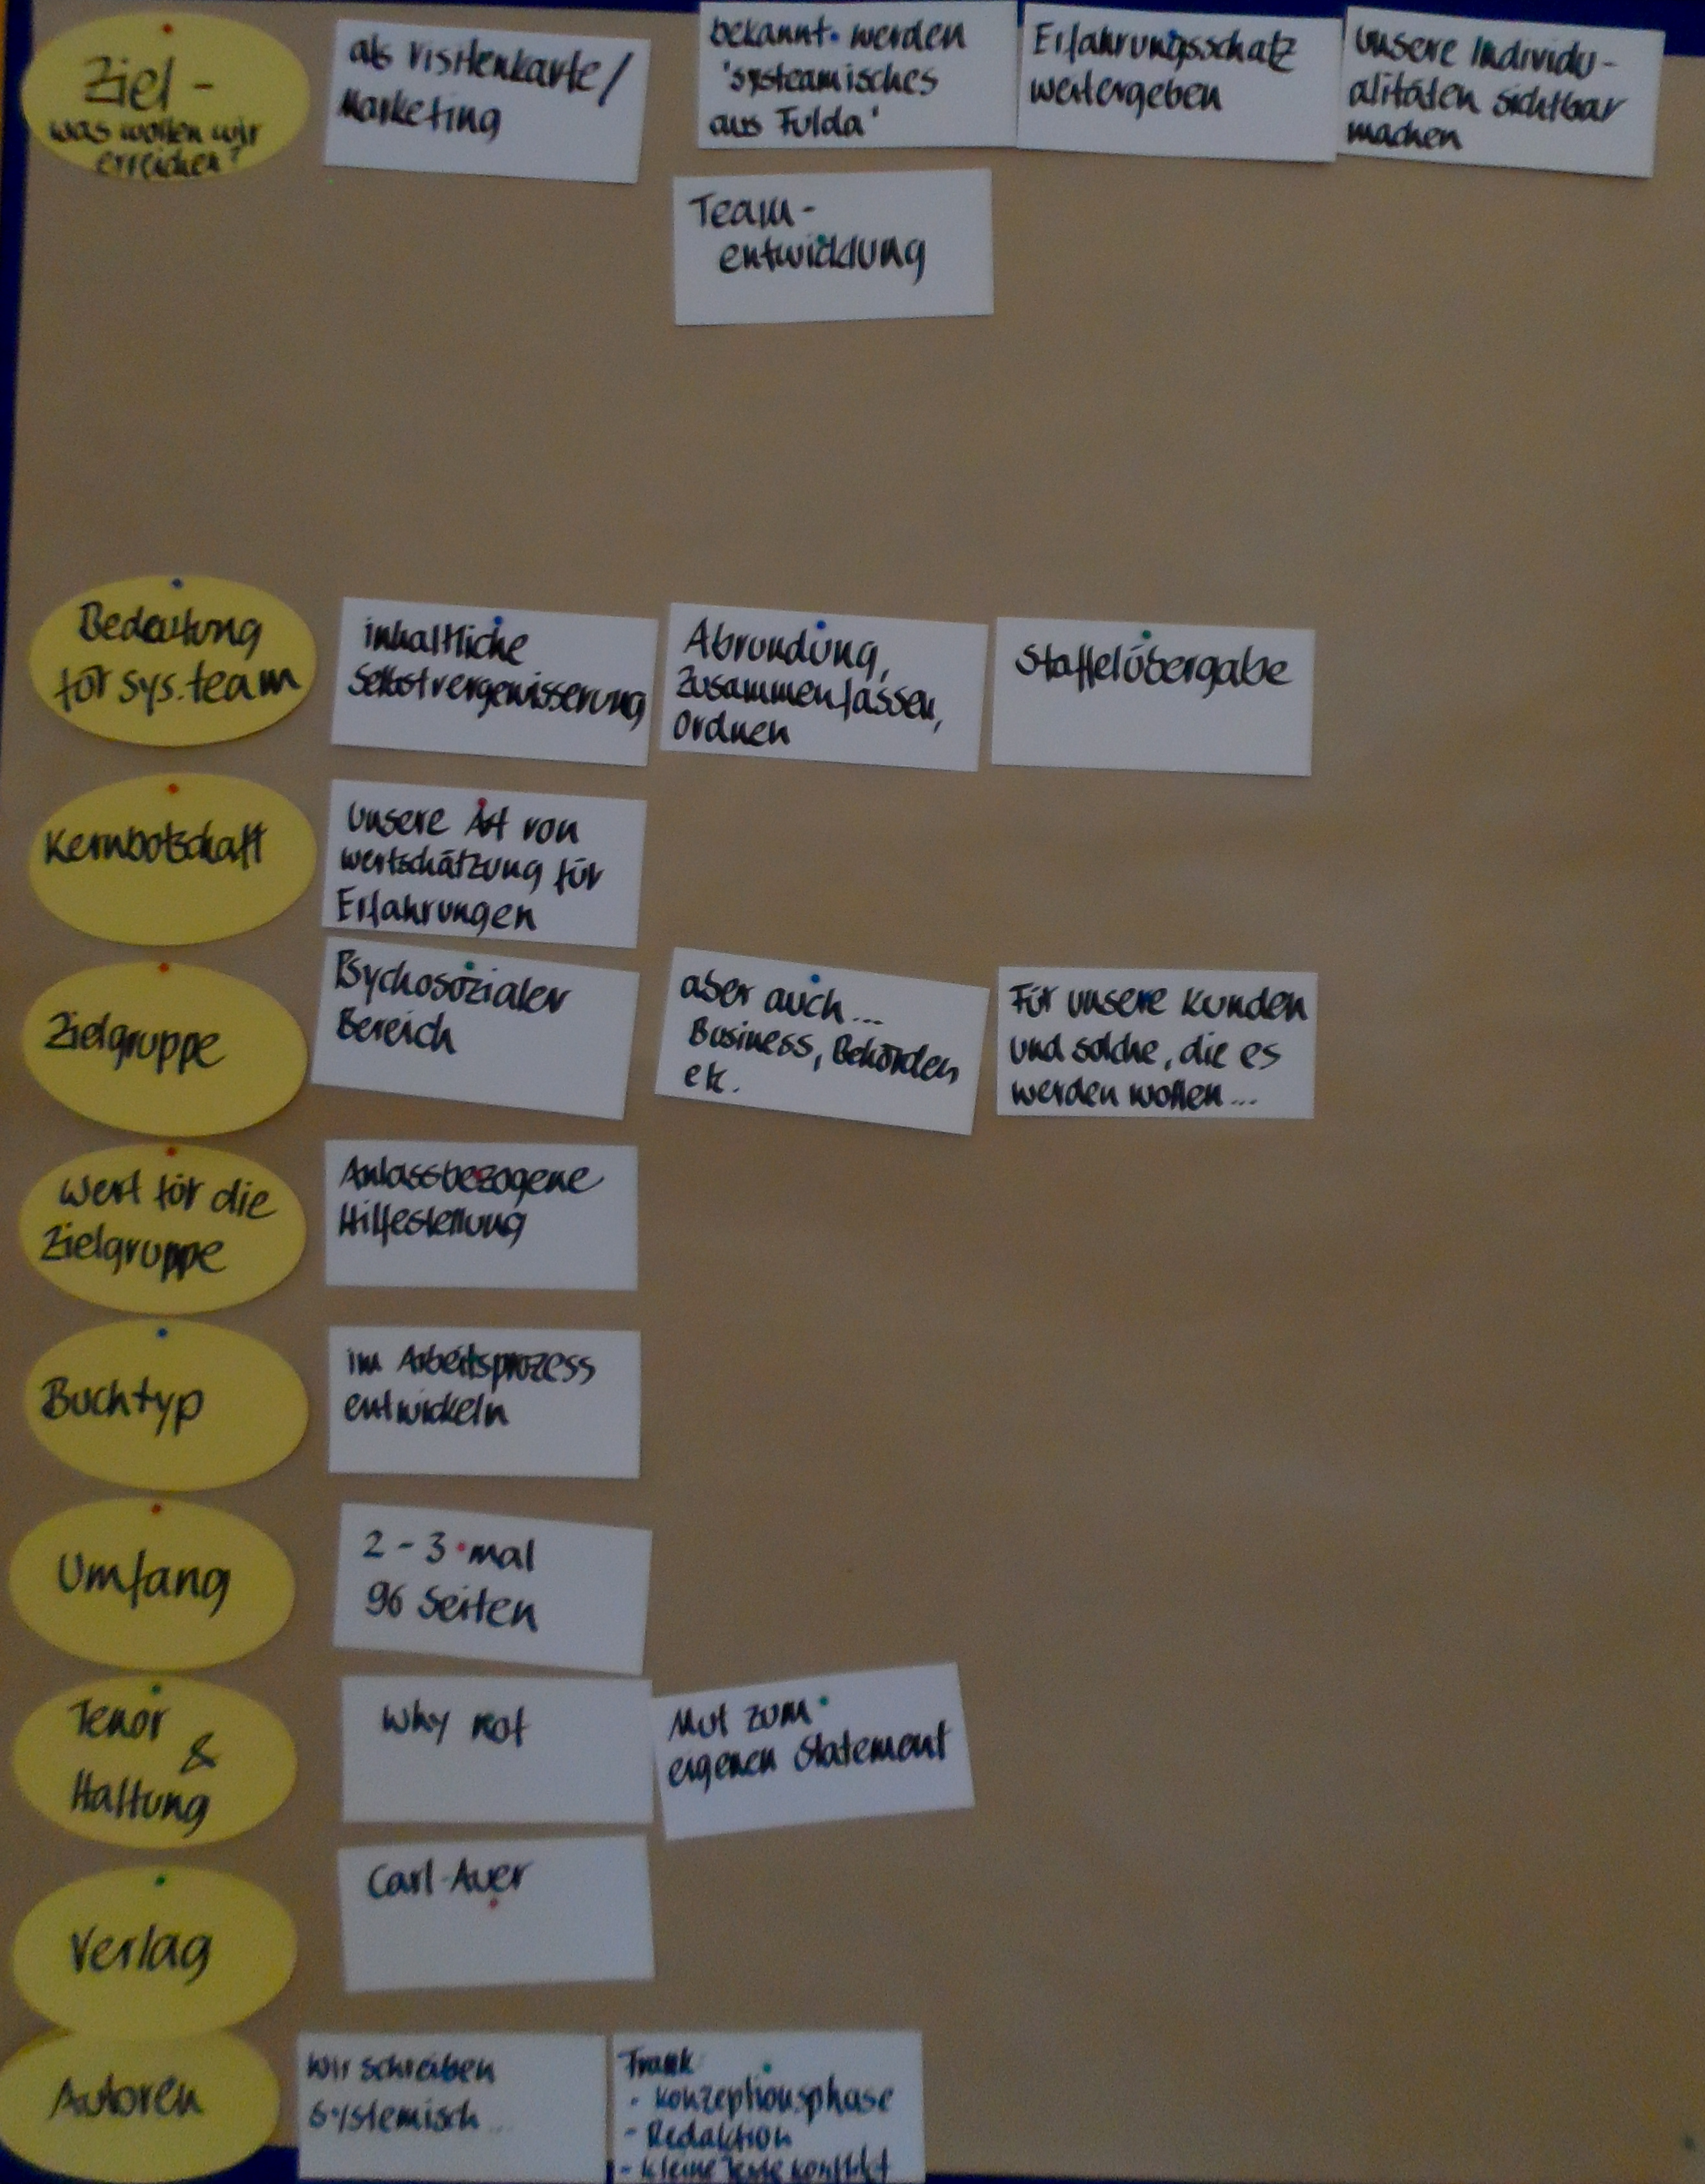 Ziel -
was wollen wir
erreichen?
als Visitenkarte/
Marketing
bekannt werden
'systeamisches
aus Fulda'
Erfahrungsschatz
weitergeben
Unsere Individu-
alitäten sichtbar
machen
Team-
entwicklung
Bedeutung
für sys.team
inhaltliche
Selbstvergewisserung
Abrundung,
Zusammenfassen,
Ordnen
Staffelübergabe
Kernbotschaft
Unsere Art von
Wertschätzung für
Erfahrungen
Zielgruppe
Psychosozialer
Bereich
aber auch...
Business, Behörden
etc.
Für unsere Kunden
und solche, die es
werden wollen...
Wert für die
Zielgruppe
Anlassbezogene
Hilfestellung
Buchtyp
im Arbeitsprozess
entwickeln
Umfang
2 - 3 mal
96 Seiten
Tenor
&
Haltung
Why not
Mut zum
eigenen Statement
Verlag
Carl-Auer
Autoren
Wir schreiben
systemisch...
Frank
- Konzeptionsphase
- Redaktion
- kleine Texte